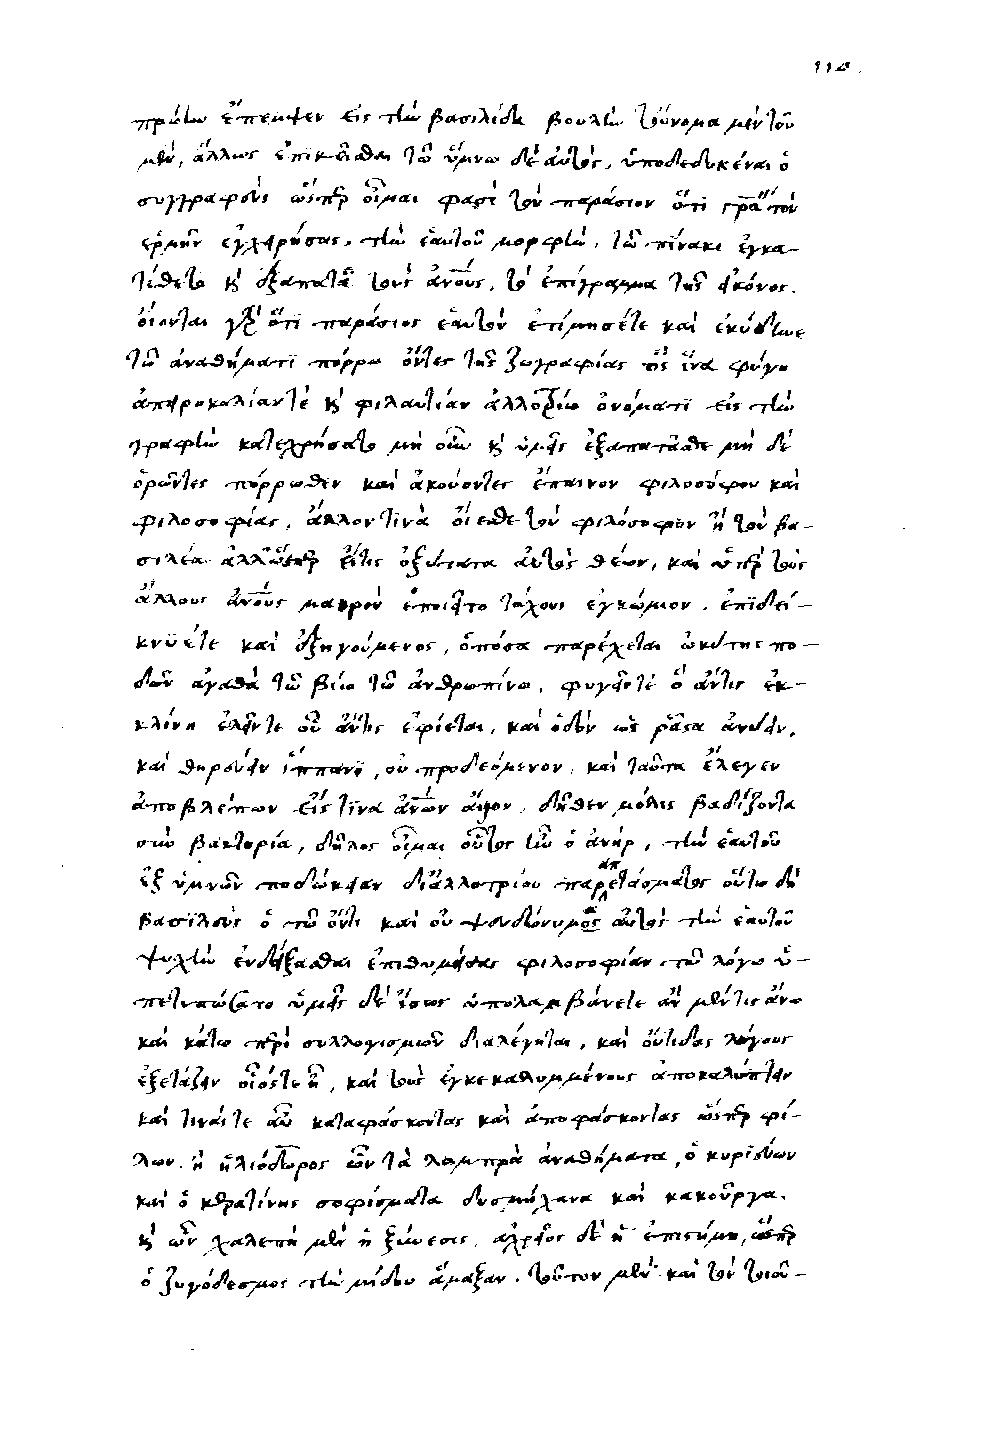 114.
πρώτω ἔπεμψεν εἰς τὴν βασιλίδα βουλὴν τοὔνομα μέντοῦ
μὲν, ἄλλως ἐπικεῖσθαι τῶ ὕμνω δὲ αὐτὸς, ὑποδεδυκέναι ὁ
συγγραφεὺς ὥσπερ οἶμαι φασὶ τὸν παράσιον ὅτι γράψας τὸν
ἑρμῆν ἐγχειρήσας, τὴν ἑαυτοῦ μορφὴν, τῶ πίνακι ἐγκα-
τέθετο καὶ ἐξαπατᾶ τοὺς ἀνους, τὸ ἐπίγραμμα τῆς εἰκόνος.
οἴονται γὰρ ὅτι παράσιος ἑαυτὸν ἐτίμησέτε καὶ ἐκύδηνε
τῶ ἀναθήματι πόρρω ὄντες τῆς ζωγραφίας ὡς ἵνα φύγη
ἀπειροκαλίαντὲ καὶ φιλαυτίαν ἀλλοτρίω ὀνόματι εἰς τὴν
γραφὴν κατεχρήσατο μὴ οὖν καὶ ὑμεῖς ἐξαπατᾶσθε μὴ δὲ
ὁρῶντες πόρρωθεν καὶ ἀκούοντες ἔπαινον φιλοσόφου καὶ
φιλοσοφίας, ἄλλον τινὰ οἴεσθε τὸν φιλόσοφον ἢ τὸν βα-
σιλέα ἀλλ' ὥσπερ εἴτις ὀξύτατα αὐτὸς θέων, καὶ ὑπὲρ τοὺς
ἄλλους ἀνους μακρὸν ἐποιεῖτο τάχους ἐγκώμιον, ἐπιδεί-
κνυέτε καὶ ἐξηγούμενος, ὁπόσα παρέχεται ὠκύτης πο-
δῶν ἀγαθὰ τῶ βίω τῶ ἀνθρωπίνω, φυγεῖντὲ ὃ ἄντις ἐκ-
κλίνη ἑλεῖντε οὗ ἄντις ἐφίεται, καὶ ὁδὸν ὡς ῥᾶστα ἀνύειν,
καὶ θηρεύειν ἵππων, οὐ προσδεόμενον, καὶ ταῦτα ἔλεγεν
ἀποβλέπων εἰς τινα ἀνων ἄπουν, δῆθεν μόλις βαδίζοντα
σὺν βακτηρία, δῆλος οἶμαι οὗτος ἦν ὁ ἀνὴρ, τὴν ἑαυτοῦ
ἐξυμνῶν ποδώκειαν δι' ἀλλοτρίου παραπετάσματος οὕτω δὴ
βασιλεὺς ὁ τῶ ὄντι καὶ οὐ ψευδώνυμος αὐτὸς τὴν ἑαυτοῦ
ψυχὴν ἐνδείξασθαι ἐπιθυμήσας φιλοσοφίαν τῶ λόγω ὑ-
πετυπώσατο ὑμεῖς δὲ ἴσως ὑπολαμβάνετε ἂν μέντις ἄνω
καὶ κάτω περὶ συλλογισμῶν διαλέγηται, καὶ οὔτιδας λόγους
ἐξετάζειν οἷόςτε ἦ, καὶ τοὺς ἐγκεκαλυμμένους ἀποκαλύπτειν
καὶ τινάςτε αὖ καταφάσκοντας καὶ ἀποφάσκοντας ὥσπερ φί-
λων, ἢ ἡλιόδωρος ὧν τὰ λαμπρὰ ἀναθήματα, ὁ κυριεύων
καὶ ὁ κερατίνης σοφίσματα δυσμήχανα καὶ κακοῦργα.
καὶ ὧν χαλεπὴ μὲν ἡ ξύνεσις, ἀχρεῖος δὲ ἡ ἐπιστήμη, ὥσπερ
ὁ ζυγόδεσμος τὴν μίδου ἅμαξαν. τοῦτον μὲν καὶ τὸν τοιοῦ-